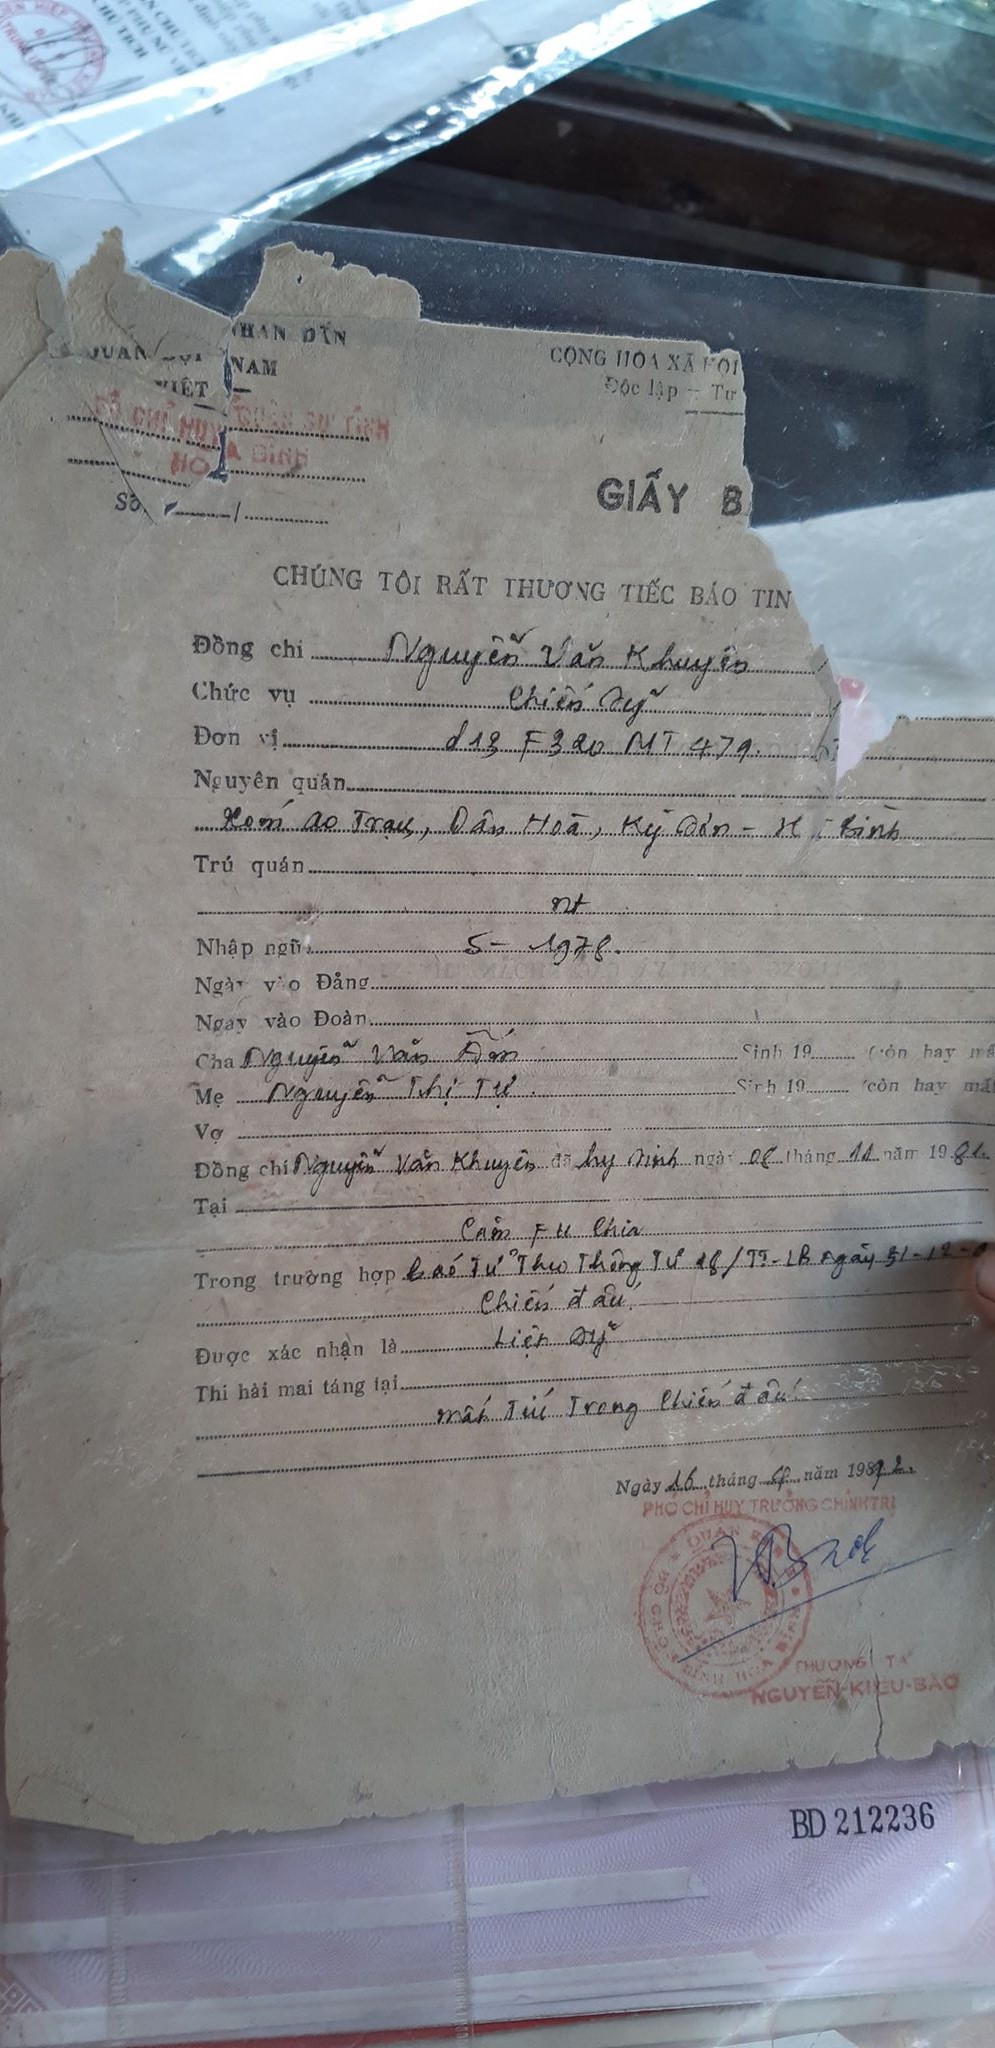 CHỦ TỊCH
NHÂN DÂN
QUÂN ĐỘI NAM
VIỆT
HÒA BÌNH
Số /
CỘNG HÒA XÃ HỘI
Độc lập — Tự
GIẤY B
CHÚNG TÔI RẤT THƯƠNG TIẾC BÁO TIN
Đồng chí Nguyễn Văn Khuyên
Chức vụ Chiến sỹ
Đơn vị d13 F320 MT 479.
Nguyên quán
Xóm Ao Trạch, Dân Hoà, Kỳ Sơn - H Bình
Trú quán
nt
Nhập ngũ 5 - 1978.
Ngày vào Đảng
Ngày vào Đoàn
Cha Nguyễn Văn Sinh 19 (còn hay mấ
Mẹ Nguyễn Thị Tự. Sinh 19 (còn hay mất
Vợ
Đồng chí Nguyễn Văn Khuyên đã hy sinh ngày 08 tháng 11 năm 1981.
Tại
Căm Fu Chia
Trong trường hợp Báo Tử Theo Thông Tư 18/TT-LB Ngày 31-12-
Chiến đấu.
Được xác nhận là Liệt sỹ
Thi hài mai táng tại
mất Tích Trong Chiến đấu
Ngày 16 tháng năm 1982.
PHÓ CHỈ HUY TRƯỞNG CHÍNH TRỊ
THƯỢNG TÁ
NGUYỄN-KIỀU-BÀO
BD 212236